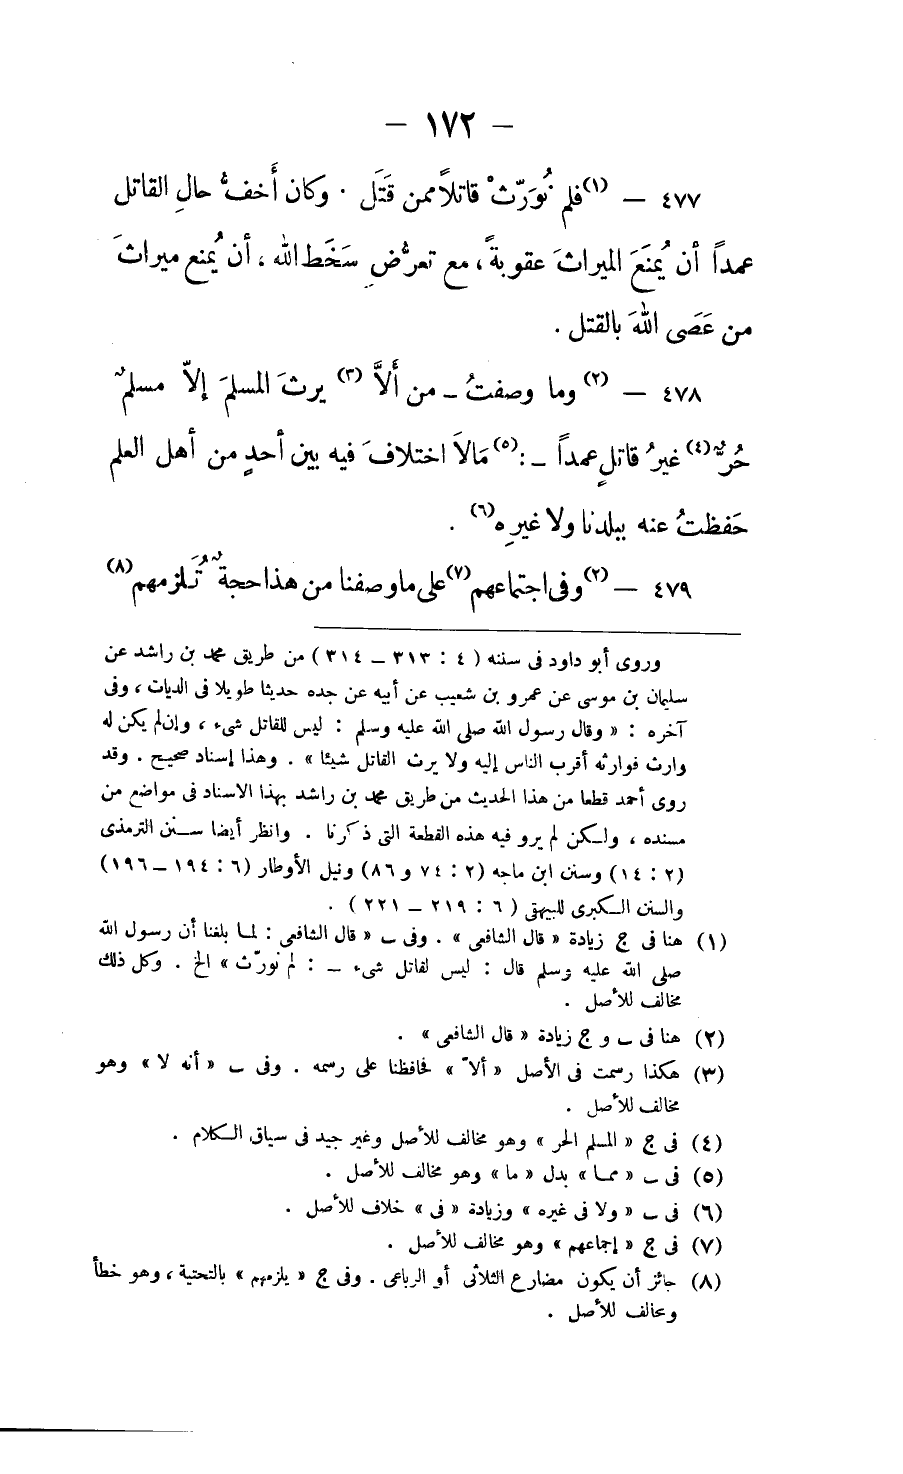 – ١٧٢ –
٤٧٧ – (١) فلم نُوَرِّثْ قاتلاً ممن قَتَل . وكان أَخفُّ حالِ القاتل
عمداً أن يُمنَعَ الميراثَ عقوبةً ، مع تعرُّضِ سَخَطِ الله ، أن يُمنع ميراثَ
من عَصَى اللهَ بالقتل .
٤٧٨ – (٢) وما وصفتُ – من أَلاَّ (٣) يرثَ المسلمَ إلاّ مسلمٌ
حُرٌّ (٤) غيرُ قاتلٍ عمداً – : (٥) مَالاَ اختلافَ فيه بين أحدٍ من أهل العلم
حَفظتُ عنه ببلدنا ولا غيرِه (٦) .
٤٧٩ – (٢) وفى اجتماعهم (٧) على ما وصفنا من هذا حجةٌ تُلزمهم (٨)
وروى أبو داود فى سننه ( ٤ : ٣١٣ – ٣١٤ ) من طريق محمد بن راشد عن
سليمان بن موسى عن عمرو بن شعيب عن أبيه عن جده حديثا طويلا فى الديات ، وفى
آخره : « وقال رسول الله صلى الله عليه وسلم : ليس للقاتل شىء ، وإن لم يكن له
وارث فوارثه أقرب الناس إليه ولا يرث القاتل شيئا » . وهذا إسناد صحيح . وقد
روى أحمد قطعا من هذا الحديث من طريق محمد بن راشد بهذا الاسناد فى مواضع من
مسنده ، ولكن لم يرو فيه هذه القطعة التى ذكرنا . وانظر أيضا سنن الترمذى
(٢ : ١٤) وسنن ابن ماجه (٢ : ٧٤ و ٨٦) ونيل الأوطار (٦ : ١٩٤ – ١٩٦)
والسنن الكبرى للبيهقى ( ٦ : ٢١٩ – ٢٢١ ) .
(١) هنا فى ج زيادة « قال الشافعى » . وفى ب « قال الشافعى : لما بلغنا أن رسول الله
صلى الله عليه وسلم قال : ليس لقاتل شىء – : لم نورّث » الخ . وكل ذلك
مخالف للأصل .
(٢) هنا فى ب و ج زيادة « قال الشافعى » .
(٣) هكذا رسمت فى الأصل « ألاّ » فحافظنا على رسمه . وفى ب « أنه لا » وهو
مخالف للأصل .
(٤) فى ج « المسلم الحر » وهو مخالف للأصل وغير جيد فى سياق الكلام .
(٥) فى ب « مما » بدل « ما » وهو مخالف للأصل .
(٦) فى ب « ولا فى غيره » وزيادة « فى » خلاف للأصل .
(٧) فى ج « إجماعهم » وهو مخالف للأصل .
(٨) جائز أن يكون مضارع الثلاثى أو الرباعى . وفى ج « يلزمهم » بالتحتية ، وهو خطأ
ومخالف للأصل .